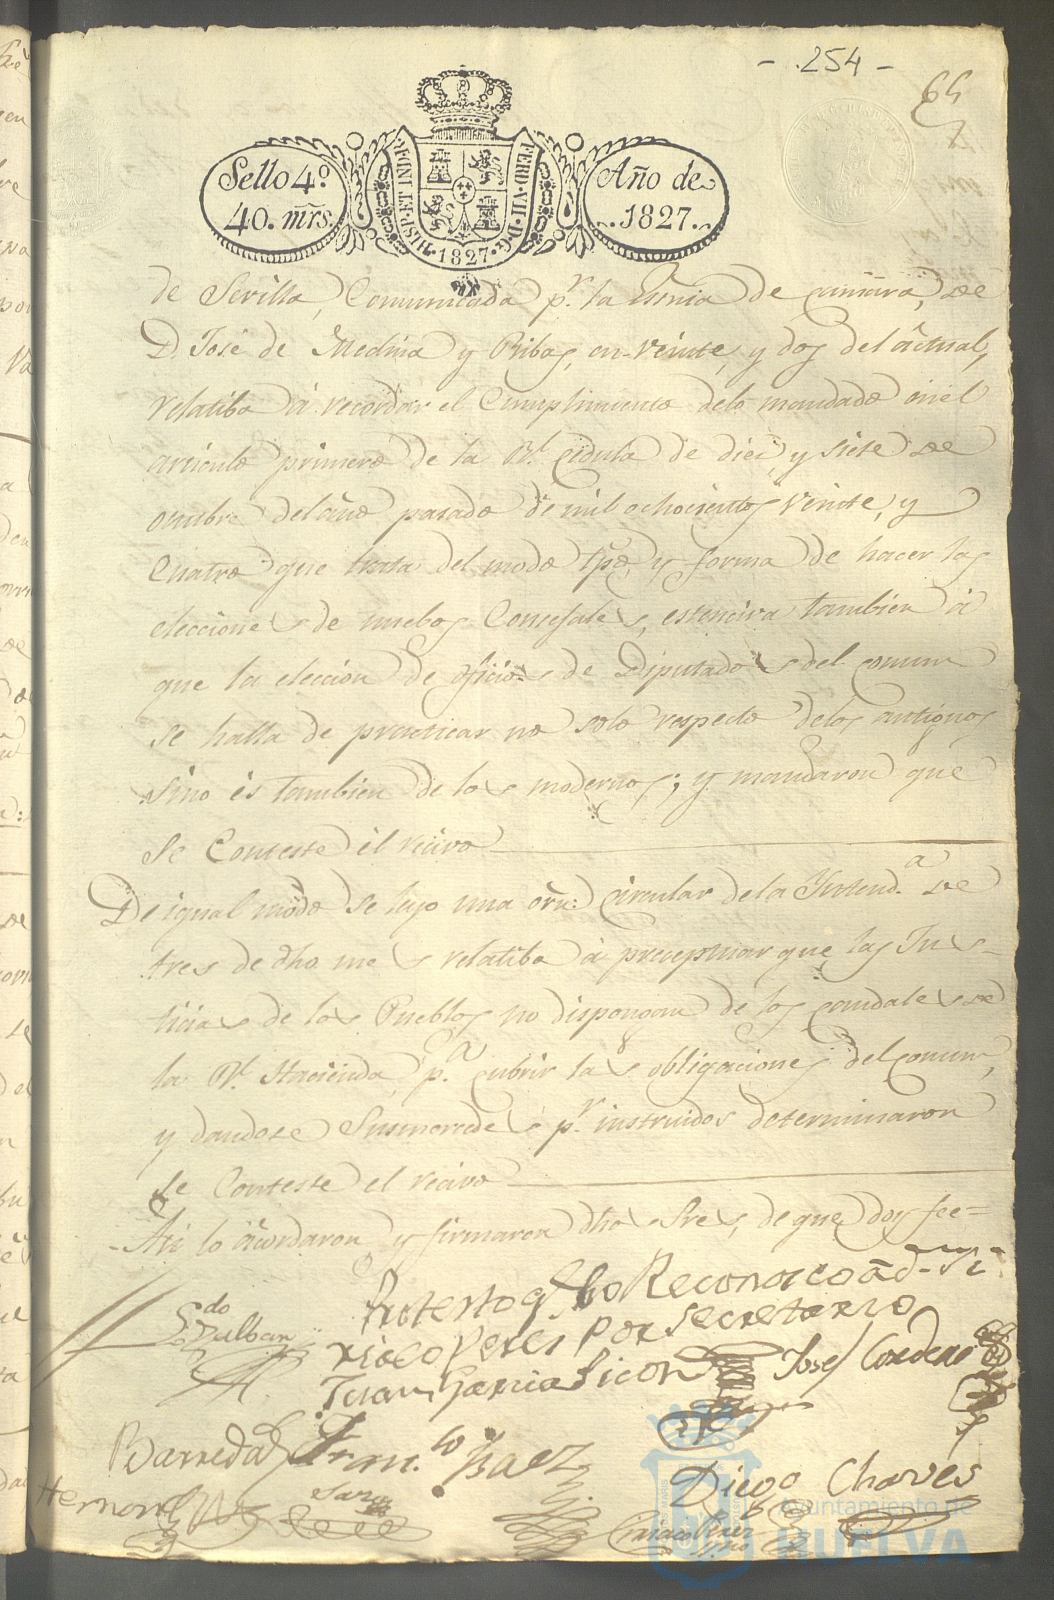 - . 254 -
Sello 4º
40. mrs
HISP. ET IND. R.
FERD. VII. D. G.
· 1827 ·
Año de
1827.
de Sevilla, Comunicada pr. la Esnia de Camara, de
D. José de Medina y Ribas, en veinte, y dos del actual,
relatiba á recordar el Cumplimiento delo mandado en el
articulo primero de la Rl. Cedula de diez, y siete de
otubre del año pasado de mil ochocientos veinte, y
Cuatro que trata del modo tpo, y forma de hacer las
elecciones de nuebos Concejales, estensiva tambien á
que la eleccion de oficios de Diputados del comun
se halla de practicar no solo respecto delos antiguos
sino es tambien de los modernos; y mandaron que
se Conteste él recivo
De igual modo se leyo una orn: Circular de la Yntenda. de
tres de dho mes relatiba á preceptuar que las Jus-
ticias de los Pueblos no dispongan de los caudales de
la Rl. Hacienda, pa. cubrir las obligaciones del comun,
y dandose Susmercedes pr. instruidos determinaron
se Conteste el recivo
Asi lo acordaron, y firmaron dhos Sres, de que doy fee=
Protesto q. No Reconosco á d.
Peres por secretario
Juan Garcia Picon
José Cordero
Barreda
Fran.co Baez
Diego Chaves
Ayuntamiento de
HUELVA